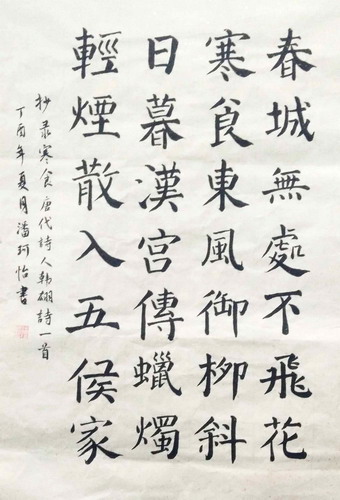 春城無處不飛花
寒食東風御柳斜
日暮漢宮傳蠟燭
輕煙散入五侯家
抄录寒食唐代詩人韩翃詩一首
丁酉年夏月潘珂怡書